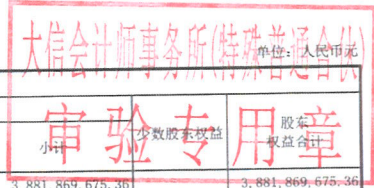 大信会计师事务所(特殊普通合伙)
单位：人民币元
审验专用章
小计
少数股东权益
股东
权益合计
3,881,869,675.36
3,881,869,675.36